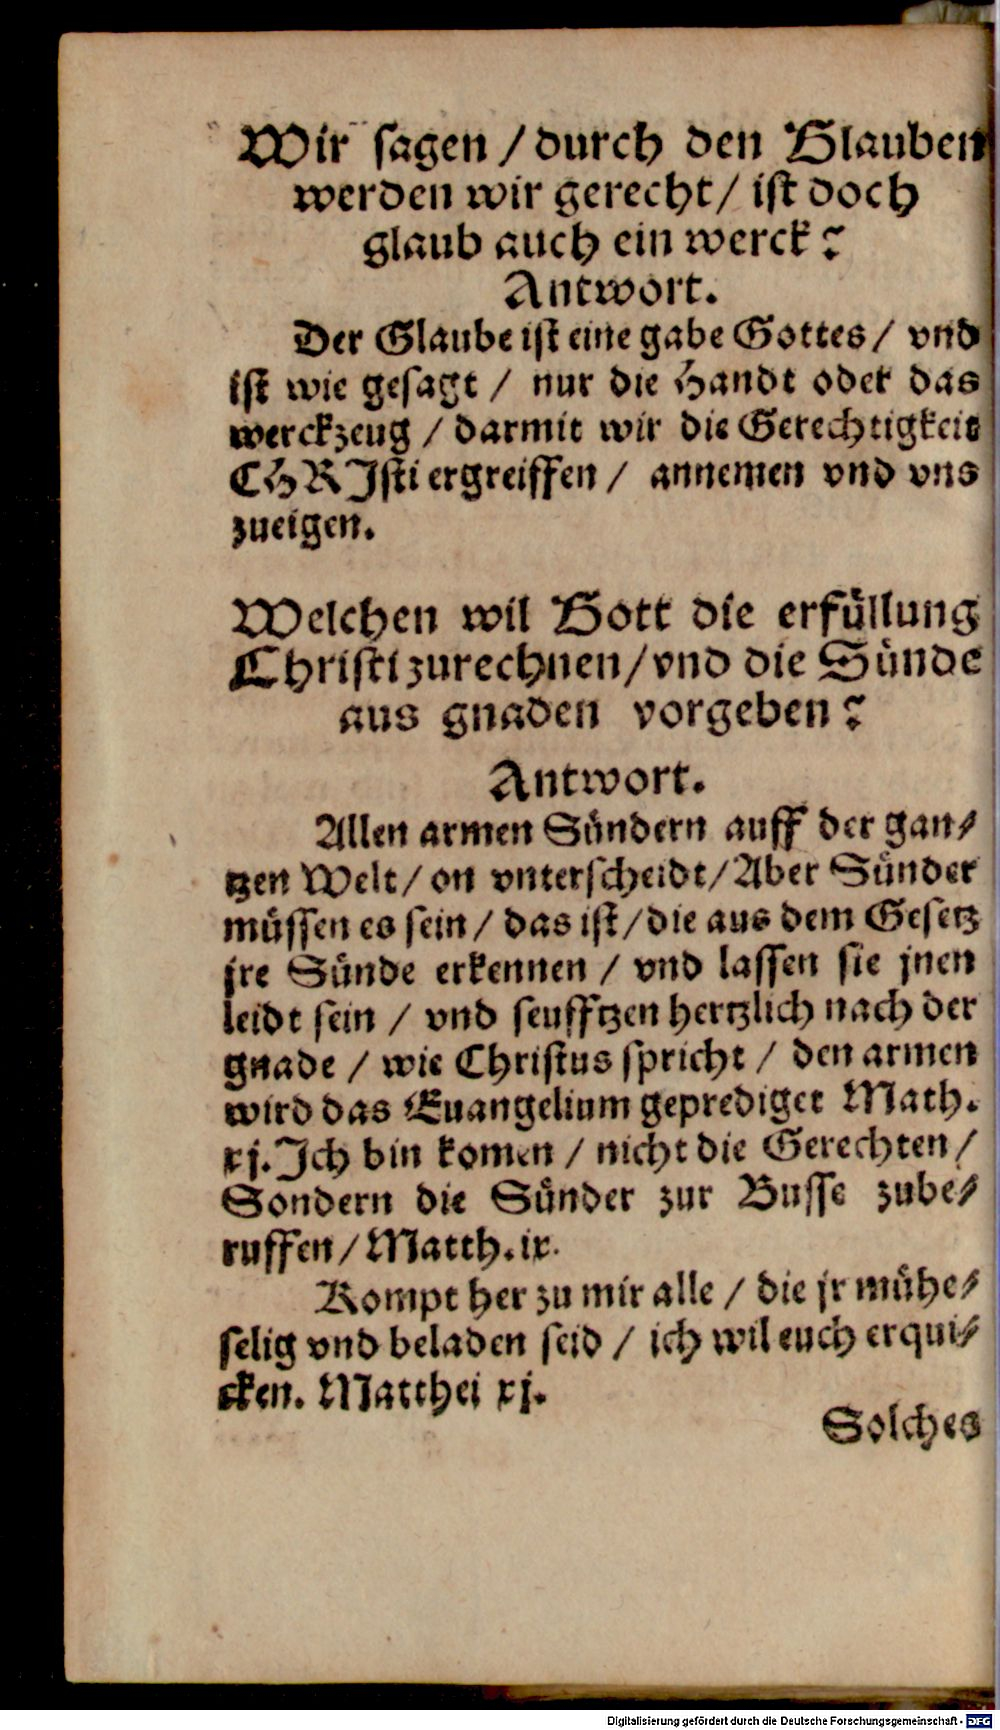 Wir sagen / durch den Glauben
werden wir gerecht / ist doch
glaub auch ein werck?
Antwort.
Der Glaube ist eine gabe Gottes / vnd
ist wie gesagt / nur die Handt oder das
werckzeug / darmit wir die Gerechtigkeit
CHRJsti ergreiffen / annemen vnd vns
zueigen.
Welchen wil Gott die erfüllung
Christi zurechnen / vnd die Sünde
aus gnaden vorgeben?
Antwort.
Allen armen Sündern auff der gan⸗
tzen Welt / on vnterscheidt / Aber Sünder
müssen es sein / das ist / die aus dem Gesetz
jre Sünde erkennen / vnd lassen sie jnen
leidt sein / vnd seufftzen hertzlich nach der
gnade / wie Christus spricht / den armen
wird das Euangelium geprediget Math.
xj. Jch bin komen / nicht die Gerechten /
Sondern die Sünder zur Busse zube⸗
ruffen / Matth. ix.
Kompt her zu mir alle / die jr mühe⸗
selig vnd beladen seid / ich wil euch erqui⸗
cken. Matthei xj.
Solches
Digitalisierung gefördert durch die Deutsche Forschungsgemeinschaft - DFG